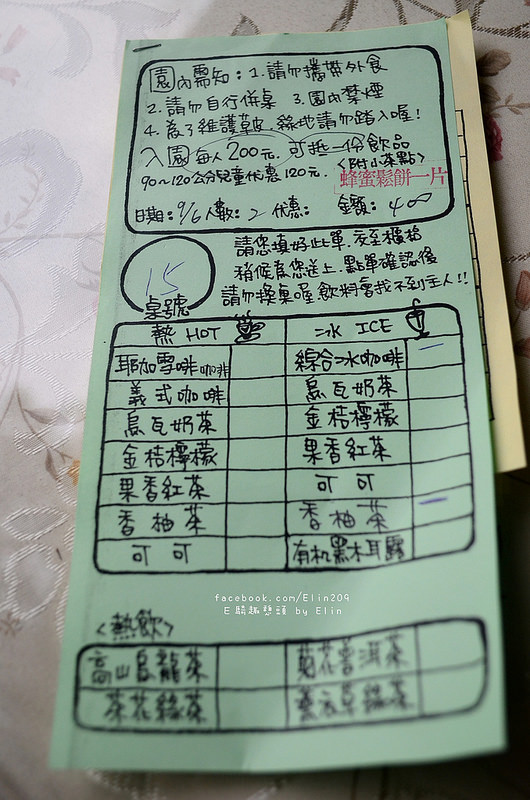 園內需知：1.請勿攜帶外食
2.請勿自行併桌 3.園內禁煙
4.為了維護草皮，綠地請勿踏入喔！
入園每人200元，可抵一份飲品
<附小茶點>
90～120公分兒童優惠120元.
蜂蜜鬆餅一片
日期：9/6 人數：2 優惠： 金額：400
請您填好此單，交至櫃檯
稍候為您送上，點單確認後
請勿換桌喔，飲料會找不到主人!!
15
桌號
熱 HOT
冰 ICE
耶加雪啡咖啡
綜合冰咖啡
義式咖啡
烏瓦奶茶
烏瓦奶茶
金桔檸檬
金桔檸檬
果香紅茶
果香紅茶
可可
香柚茶
香柚茶
可可
有机黑木耳露
facebook.com/Elin209
E騎趣戀頭 by Elin
<熱飲>
高山烏龍茶
菊花普洱茶
茶花綠茶
薰衣草綠茶